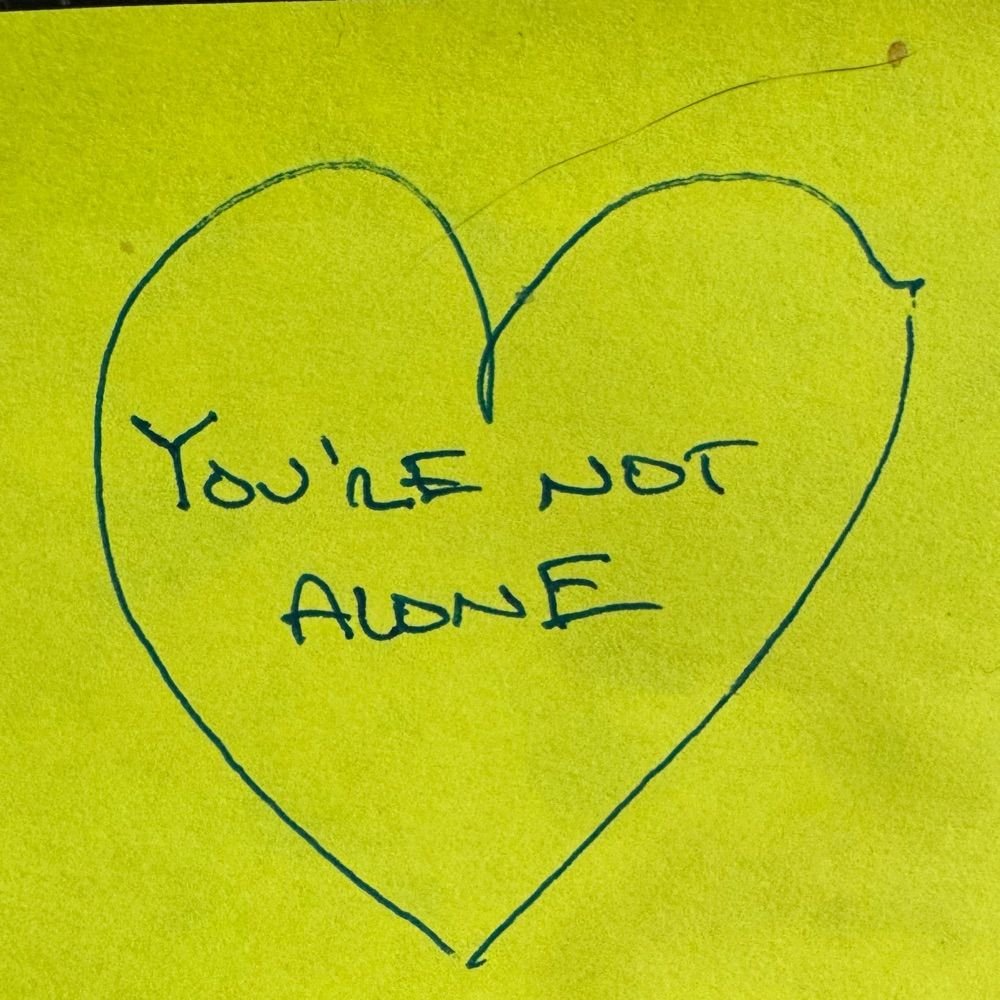 You're NOT
ALONE